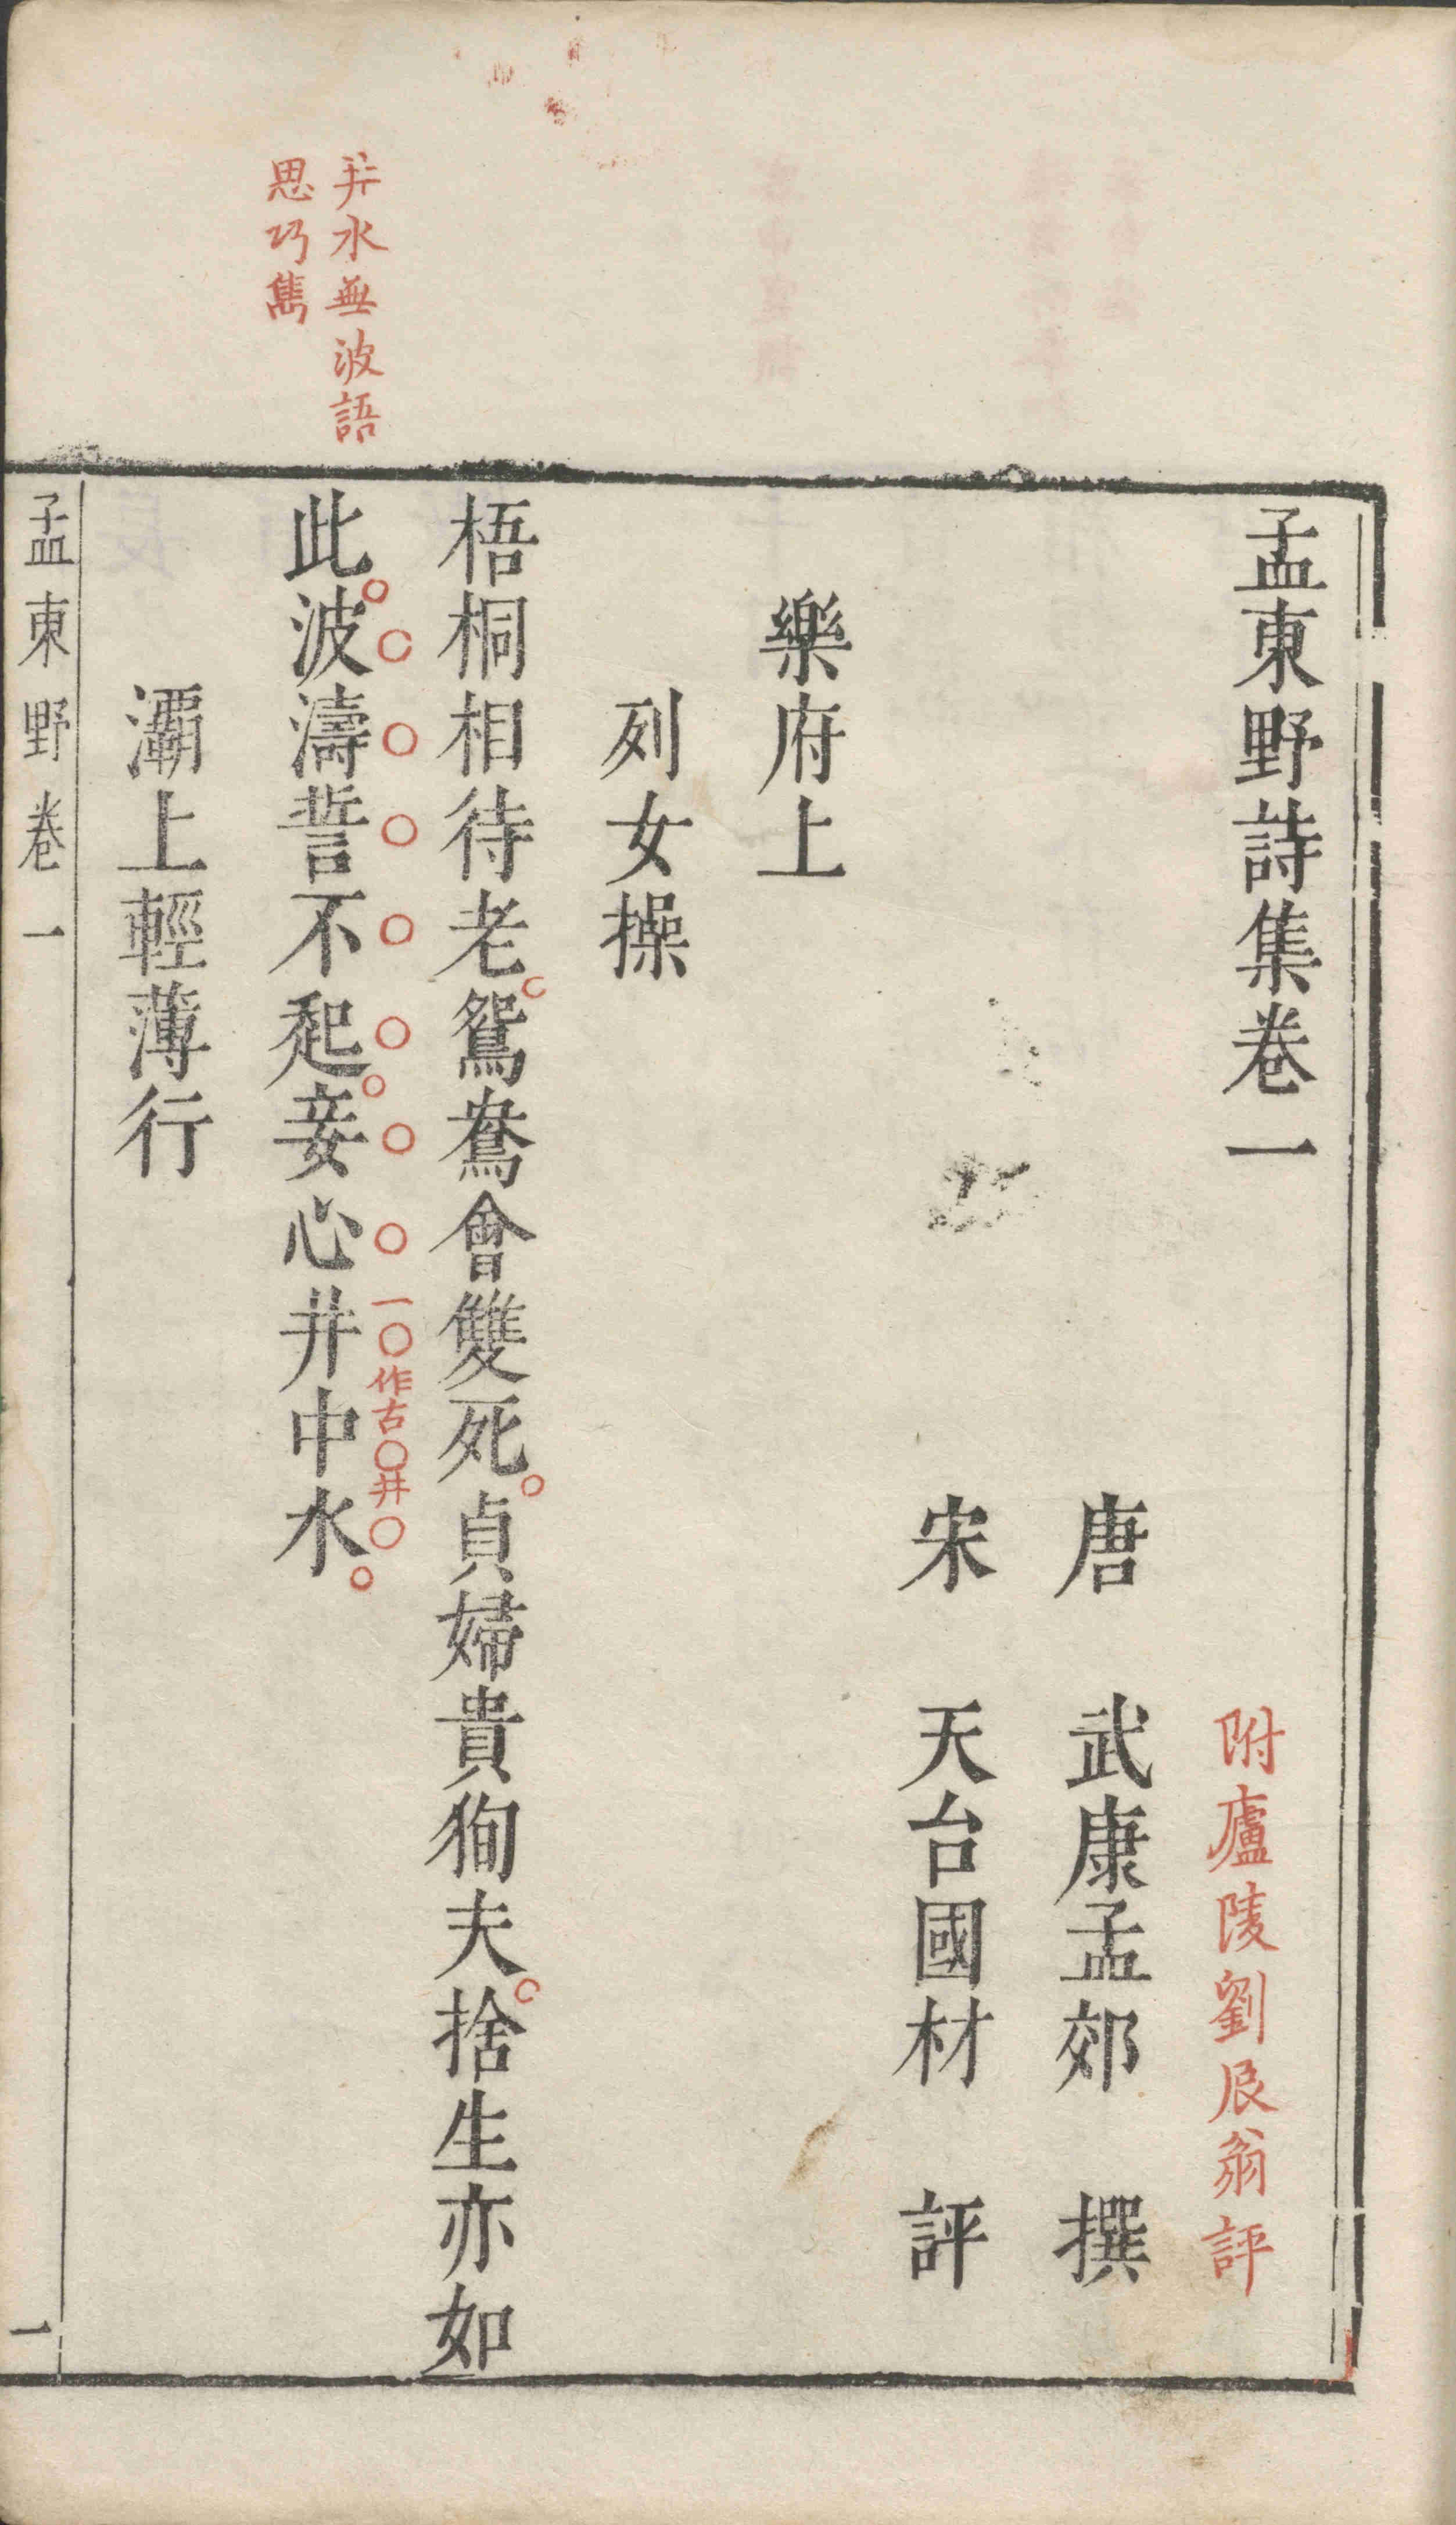 孟東野詩集卷一
附廬陵劉辰翁評
唐 武康孟郊 撰
宋 天台國材 評
樂府上
列女操
梧桐相待老鴛鴦會雙死貞婦貴狥夫捨生亦如
此波濤誓不起妾心井中水
一作古井
井水無波語
思巧雋
灞上輕薄行
孟東野卷一
一